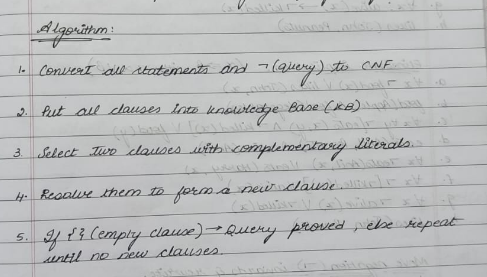 Algorithm:
1. Convert all statements and ¬(query) to CNF
2. Put all clauses into knowledge Base (KB)
3. Select two clauses with complementary literals.
4. Resolve them to form a new clause.
5. If { } (empty clause) → Query proved, else repeat
until no new clauses.